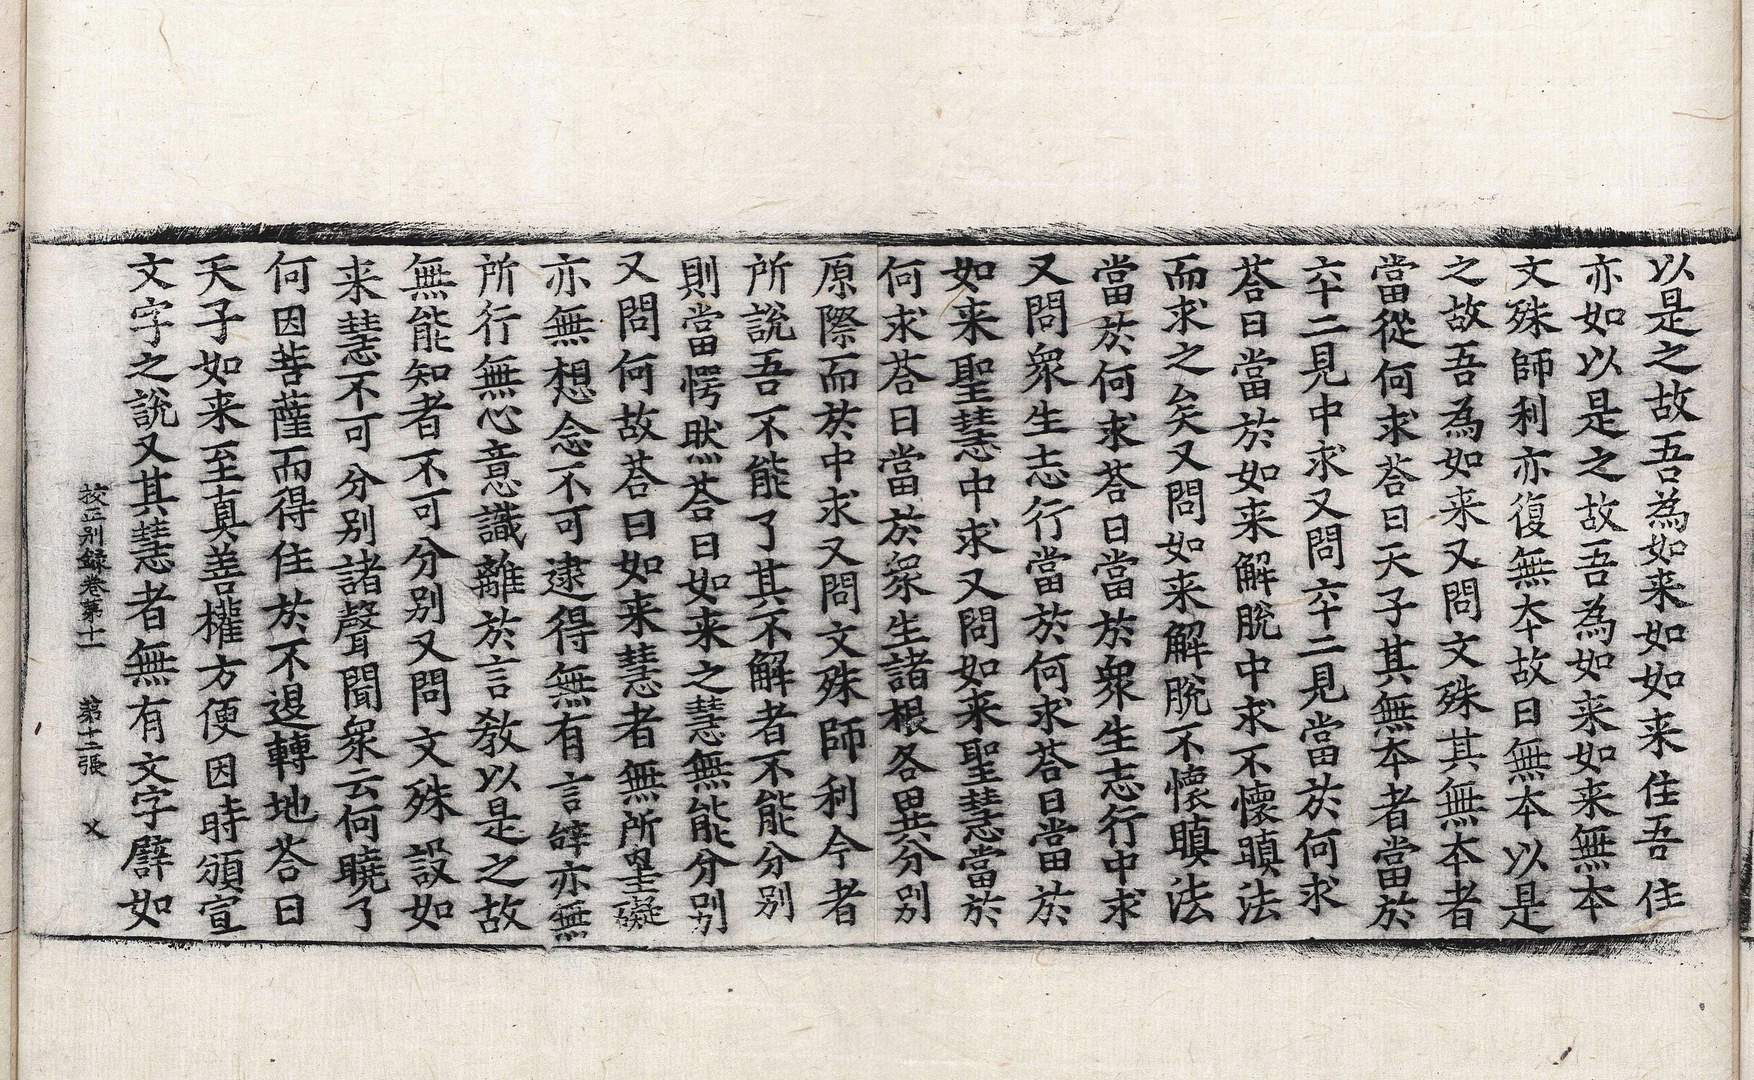 以是之故吾為如来如如来住吾住
亦如以是之故吾為如来如来無本
文殊師利亦復無本故曰無本以是
之故吾為如来又問文殊其無本者
當從何求荅曰天子其無本者當於
六十二見中求又問六十二見當於何求
荅曰當於如来解脫中求不懷瞋法
而求之矣又問如来解脫不懷瞋法
當於何求荅曰當於衆生志行中求
又問衆生志行當於何求荅曰當於
如来聖慧中求又問如来聖慧當於
何求荅曰當於衆生諸根各異分別
原際而於中求又問文殊師利今者
所說吾不能了其不解者不能分別
則當愕然荅曰如来之慧無能分別
又問何故荅曰如来慧者無所罣礙
亦無想念不可逮得無有言辝亦無
所行無心意識離於言教以是之故
無能知者不可分別又問文殊設如
来慧不可分別諸聲聞衆云何曉了
何因菩薩而得住於不退轉地荅曰
天子如来至真善權方便因時頒宣
文字之說又其慧者無有文字譬如
挍正別録卷第十一 第十二張 㸚